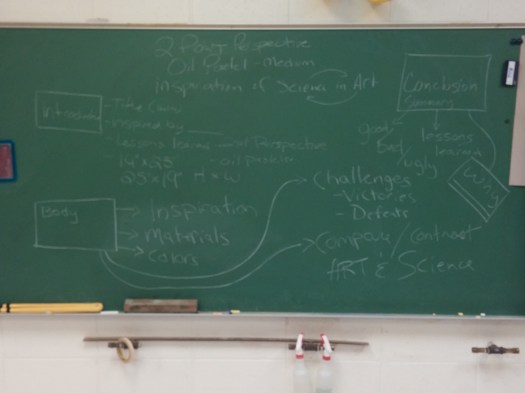 2 Point Perspective
Oil Pastel - medium
Inspiration of Science in Art
Introduction
- Title (Name)
- Inspired by
- Lessons learned
- 14" x 25"
25" x 19" H x W
- oil pastels
Conclusion
Summary
good
bad
ugly
lessons
learned
Why
Body
Inspiration
Materials
Colors
Challenges
- Victories
- Defeats
Compare / Contrast
ART & Science